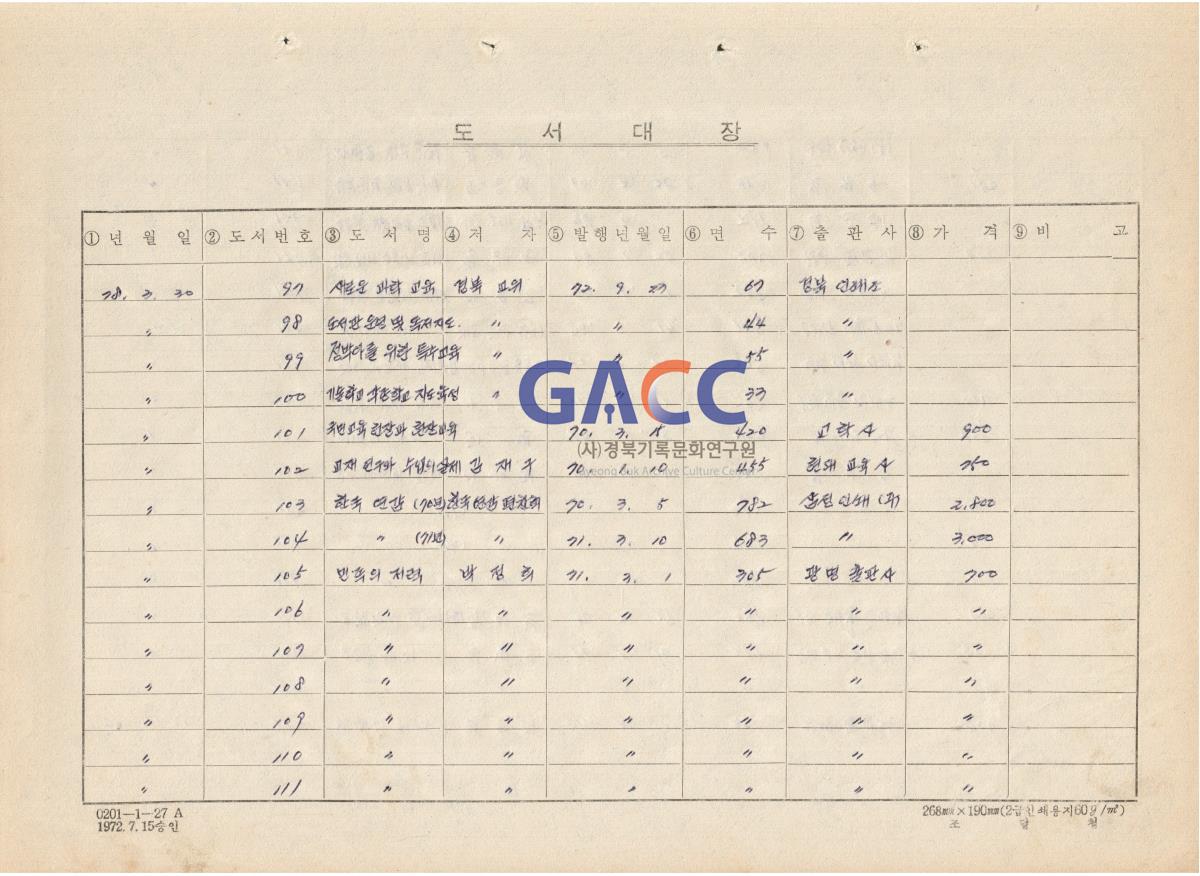 도 서 대 장
① 년 월 일 ② 도서번호 ③ 도 서 명 ④ 저 자 ⑤ 발행년월일 ⑥ 면 수 ⑦ 출 판 사 ⑧ 가 격 ⑨ 비 고
78. 3. 30 97 새로운 과학 교육 경북 교위 72. 9. 23 67 경북 인쇄소
〃 98 도서관 운영 및 독서지도. 〃 〃 44 〃
〃 99 정박아를 위한 특수교육 〃 〃 55 〃
〃 100 지도육성 〃 〃 33 〃
〃 101 국민교육헌장과 헌장교육 70. 3. 15 420 교학사 900
〃 102 교재 연구와 수업의 실제 김 재 70. 1. 10 455 현대 교육사 750
〃 103 한국 연감 (70년) 한국연감 편찬회 70. 3. 5 782 인쇄 (주) 2,800
〃 104 〃 (71년) 〃 71. 3. 10 683 〃 3,000
〃 105 민족의 저력 박 정 희 71. 3. 1 305 광명 출판사 700
〃 106 〃 〃 〃 〃 〃 〃
〃 107 〃 〃 〃 〃 〃 〃
〃 108 〃 〃 〃 〃 〃 〃
〃 109 〃 〃 〃 〃 〃 〃
〃 110 〃 〃 〃 〃 〃 〃
〃 111 〃 〃 〃 〃 〃 〃
GACC
(사)경북기록문화연구원
Gyeong Buk Archive Culture Center
0201—1—27 A
1972. 7. 15승인
268㎜×190㎜(2급인쇄용지60g/㎡)
조 달 청